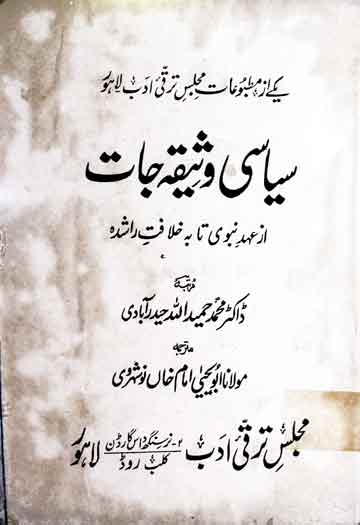 یکے از مطبوعات مجلس ترقیٔ ادب لاہور
سیاسی وثیقہ جات
از عہدِ نبوی تا بہ خلافتِ راشدہ
مرتبہ
ڈاکٹر محمد حمید اللہ حیدرآبادی
مترجمہ
مولانا ابو یحییٰ امام خاں نوشہروی
مجلسِ ترقیٔ ادب ۲- نرسنگداس گارڈن کلب روڈ لاہور